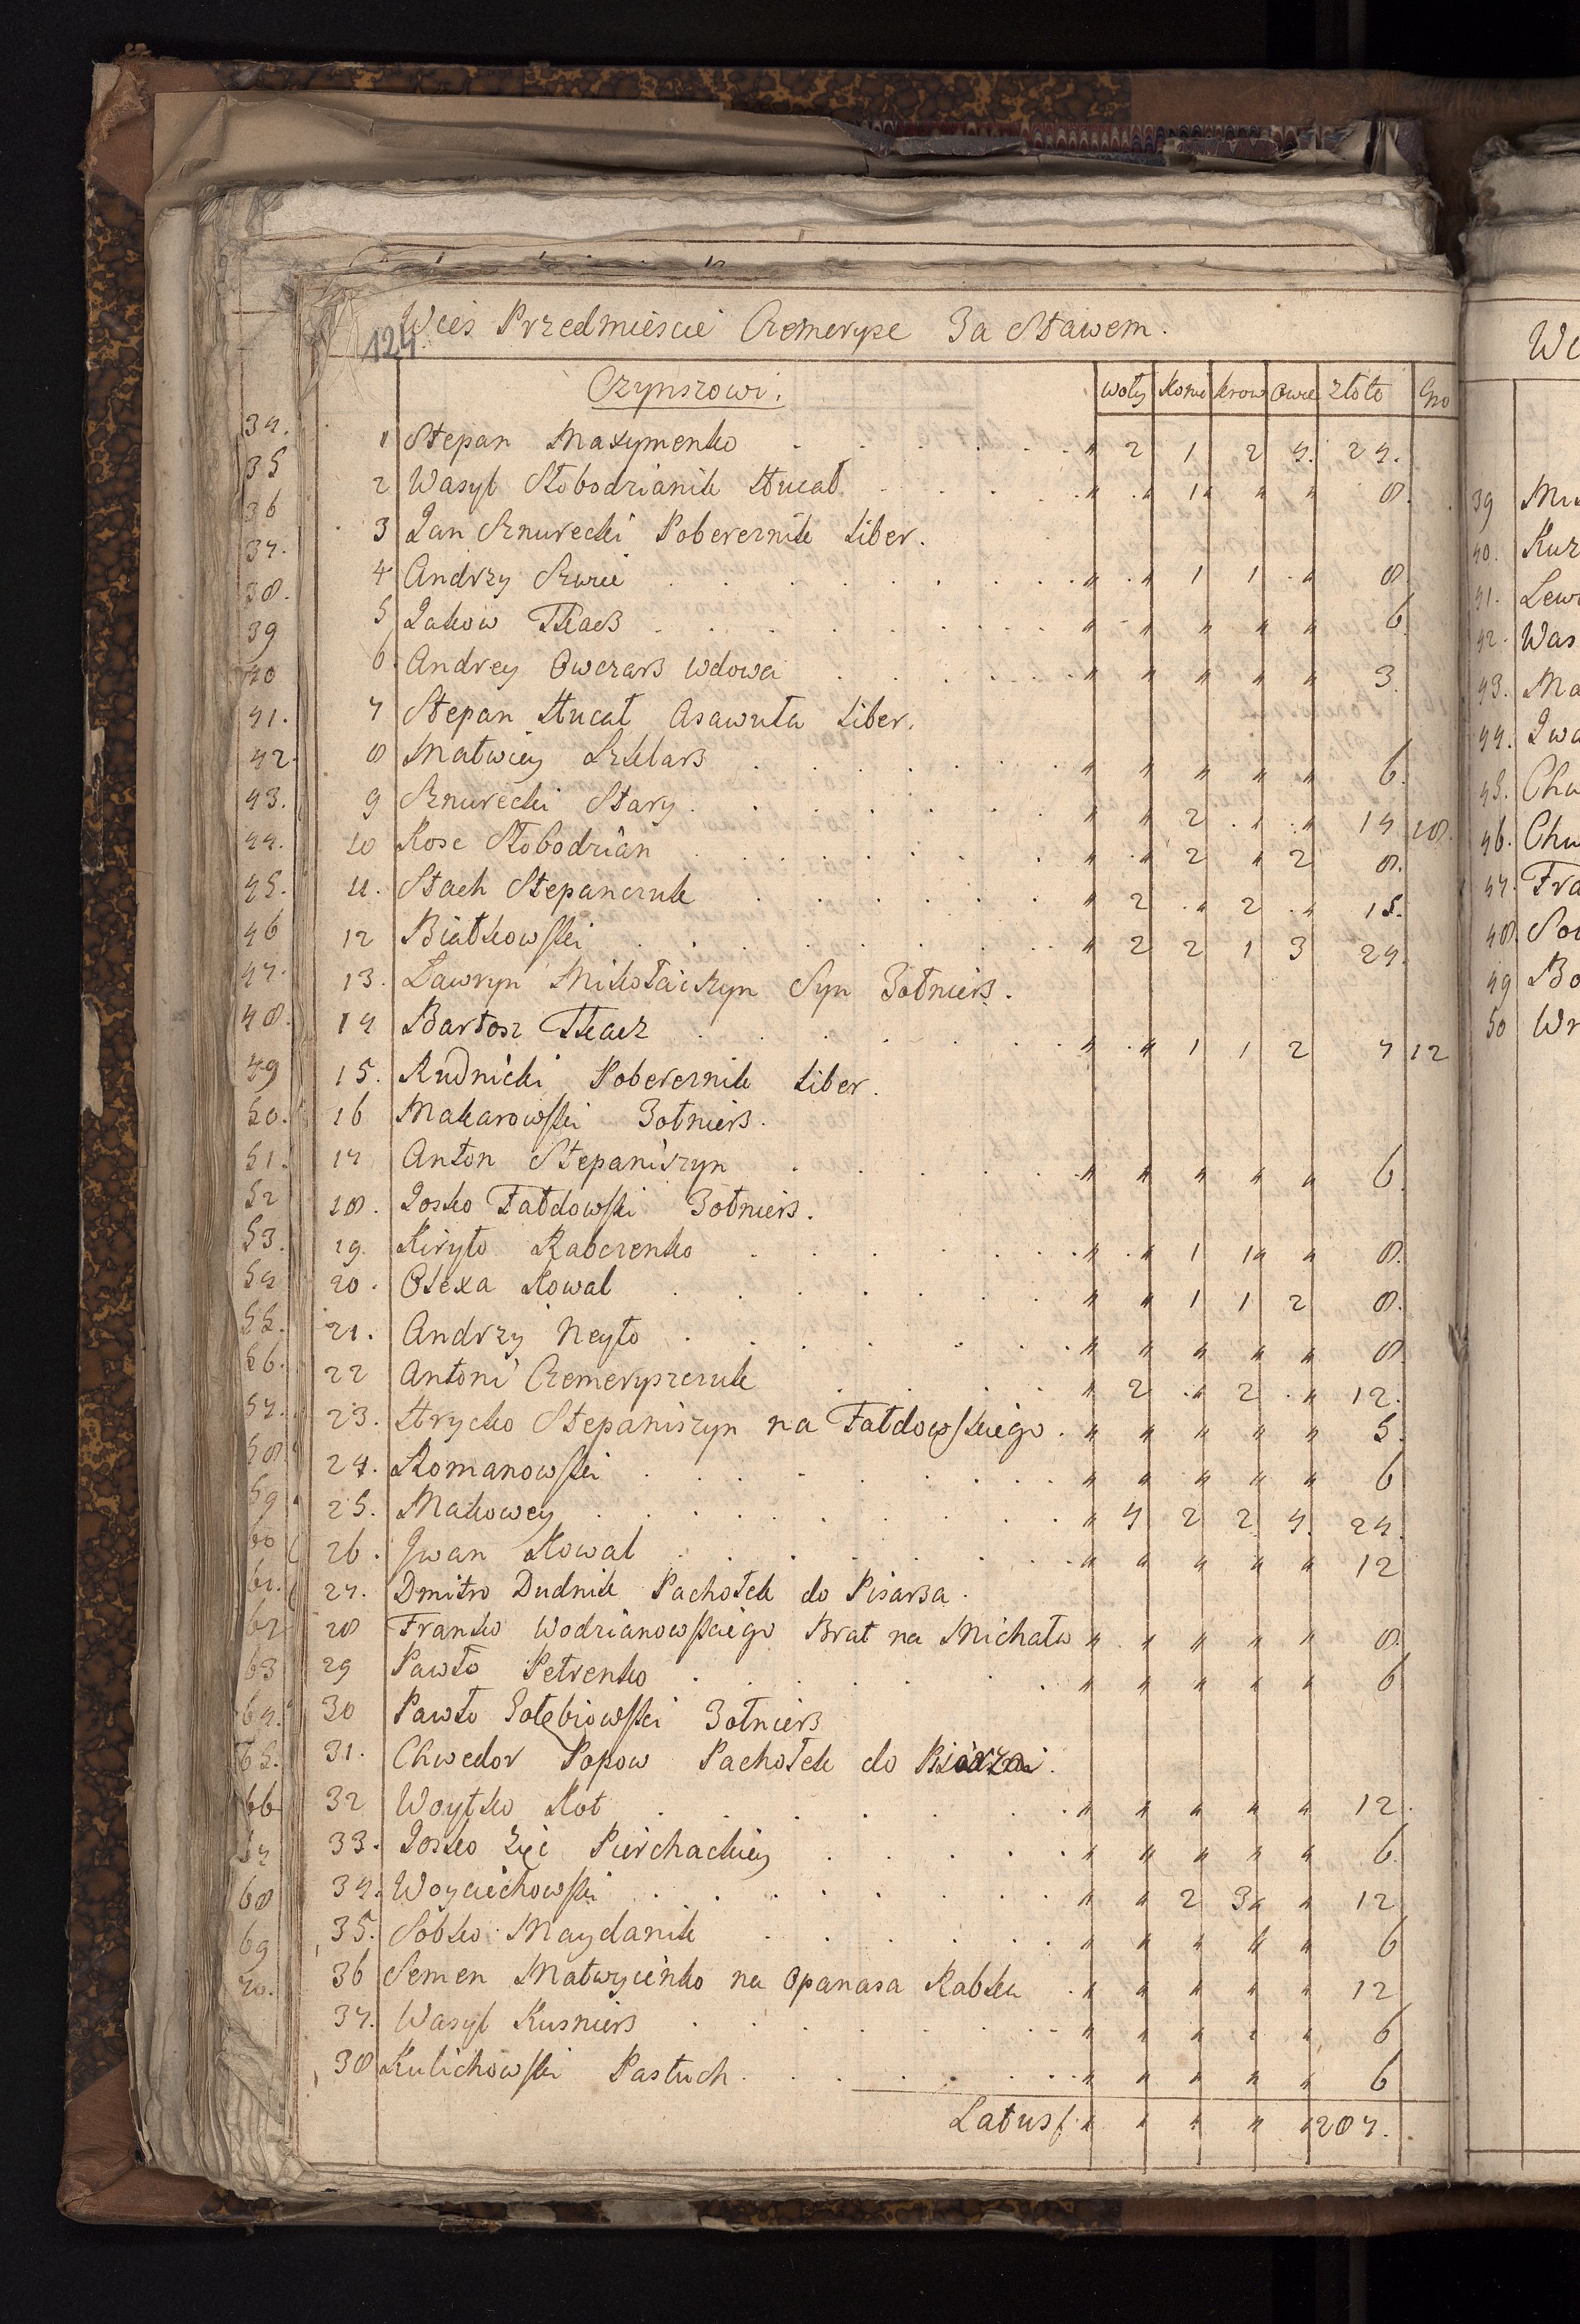 124.
Wieś Przedmieście Czemerysze Za Stawem.
Czynszowi. woły konie krow Owce złoto Gro
1 Stepan Maxymenko " 2 1 2 4. 24.
2 Wasyl Słobodzianik Hucał " " 1 " " 8.
3 Jan Sznurecki Pobereznik Liber.
4 Andrzy Szwie " " 1 1 " 8
5 Jakow Tkacz " " " " " 6.
6. Andrey Owczarz wdowa " " " " " 3
7 Stepan Hucał Asawuła Liber.
8 Matwiey Szklarz " " " " " 6.
9 Sznurecki Stary " " 2 " " 14 18.
10 Kosc Słobodzian " " 2 " 2 8.
11. Stach Stepanczuk " 2 " 2 " 15.
12 Białkowski " 2 2 1 3 24.
13. Ławryn Mikołaiczyn Syn Zołnierz.
14 Bartosz Tkacz " " 1 1 2 7 12
15. Rudnicki Pobereznik Liber.
16 Makarowski Zołnierz.
17 Anton Stepaniszyn " " " " " 6.
18. Josko Fałdowski Zołnierz.
19. Kiryło Rabczenko " " 1 1 " 8.
20. Olexa Kowal " " 1 1 2 8.
21. Andrzy Neyło " " " " " 8.
22 Antoni Czemeryszczuk " 2 " 2 " 12.
23. Hrycko Stepaniszyn na Fałdowskiego. " " " " " 5.
24. Romanowski " " " " " 6
25. Makowey " 4 2 2 4. 24.
26. Jwan Kowal " " " " " 12
27. Dmitro Dudnik Pachołek do Pisarza.
28 Franko Wodzianowskiego Brat na Michała " " " " " 8
29 Pawło Petrenko " " " " " 6
30 Pawło Gołębiowski Zołnierz
31. Chwedor Popow Pachołek do
32 Woytko Kot " " " " " 12.
33. Josko Zięć Pierchackiey " " " " " 6.
34. Woyciechowski " " 2 3 " 12
35. Sobko Maydanik " " " " " 6
36 Semen Matwyienko na Opanasa Rabka " " " " " 12
37. Wasyl Kusnierz " " " " " 6
38 Kulichowski Pastuch. " " " " " 6
Latus " " " " " 287.
34.
35
36
37.
38.
39
40
41.
42.
43.
44.
45.
46
47.
48.
49
50.
51.
52
53.
54
55.
56.
57.
58.
59
60
61.
62
63
64.
65.
66
68
69
70.
39
40. Kuz
41. Lew
42. Was
43. Ma
44. Jwa
45. Chw
46. Chw
47. Fra
48.
49 Bo
50 Wr